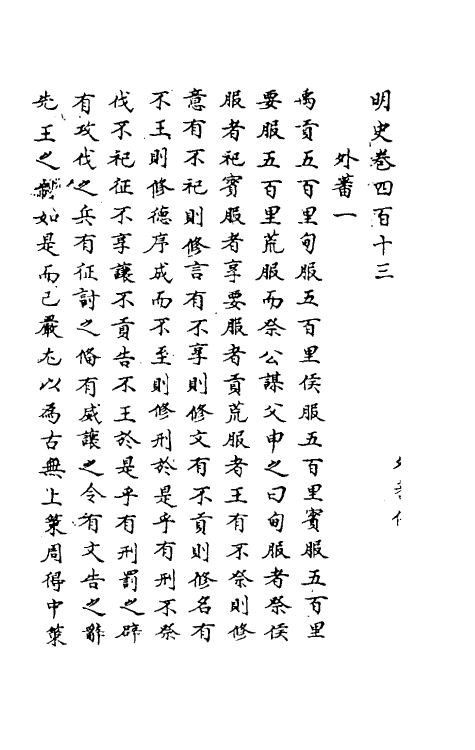 明史卷四百十三
外蕃一
禹貢五百里甸服五百里侯服五百里賓服五百里
要服五百里荒服而祭公謀父申之曰甸服者祭侯
服者祀賓服者享要服者貢荒服者王有不祭則修
意有不祀則修言有不享則修文有不貢則修名有
不王則修德序成而不至則修刑於是乎有刑不祭
伐不祀征不享讓不貢告不王於是乎有刑罰之辟
有攻伐之兵有征討之備有威讓之令有文告之辭
先王之制如是而已嚴尤以為古無上策周得中策